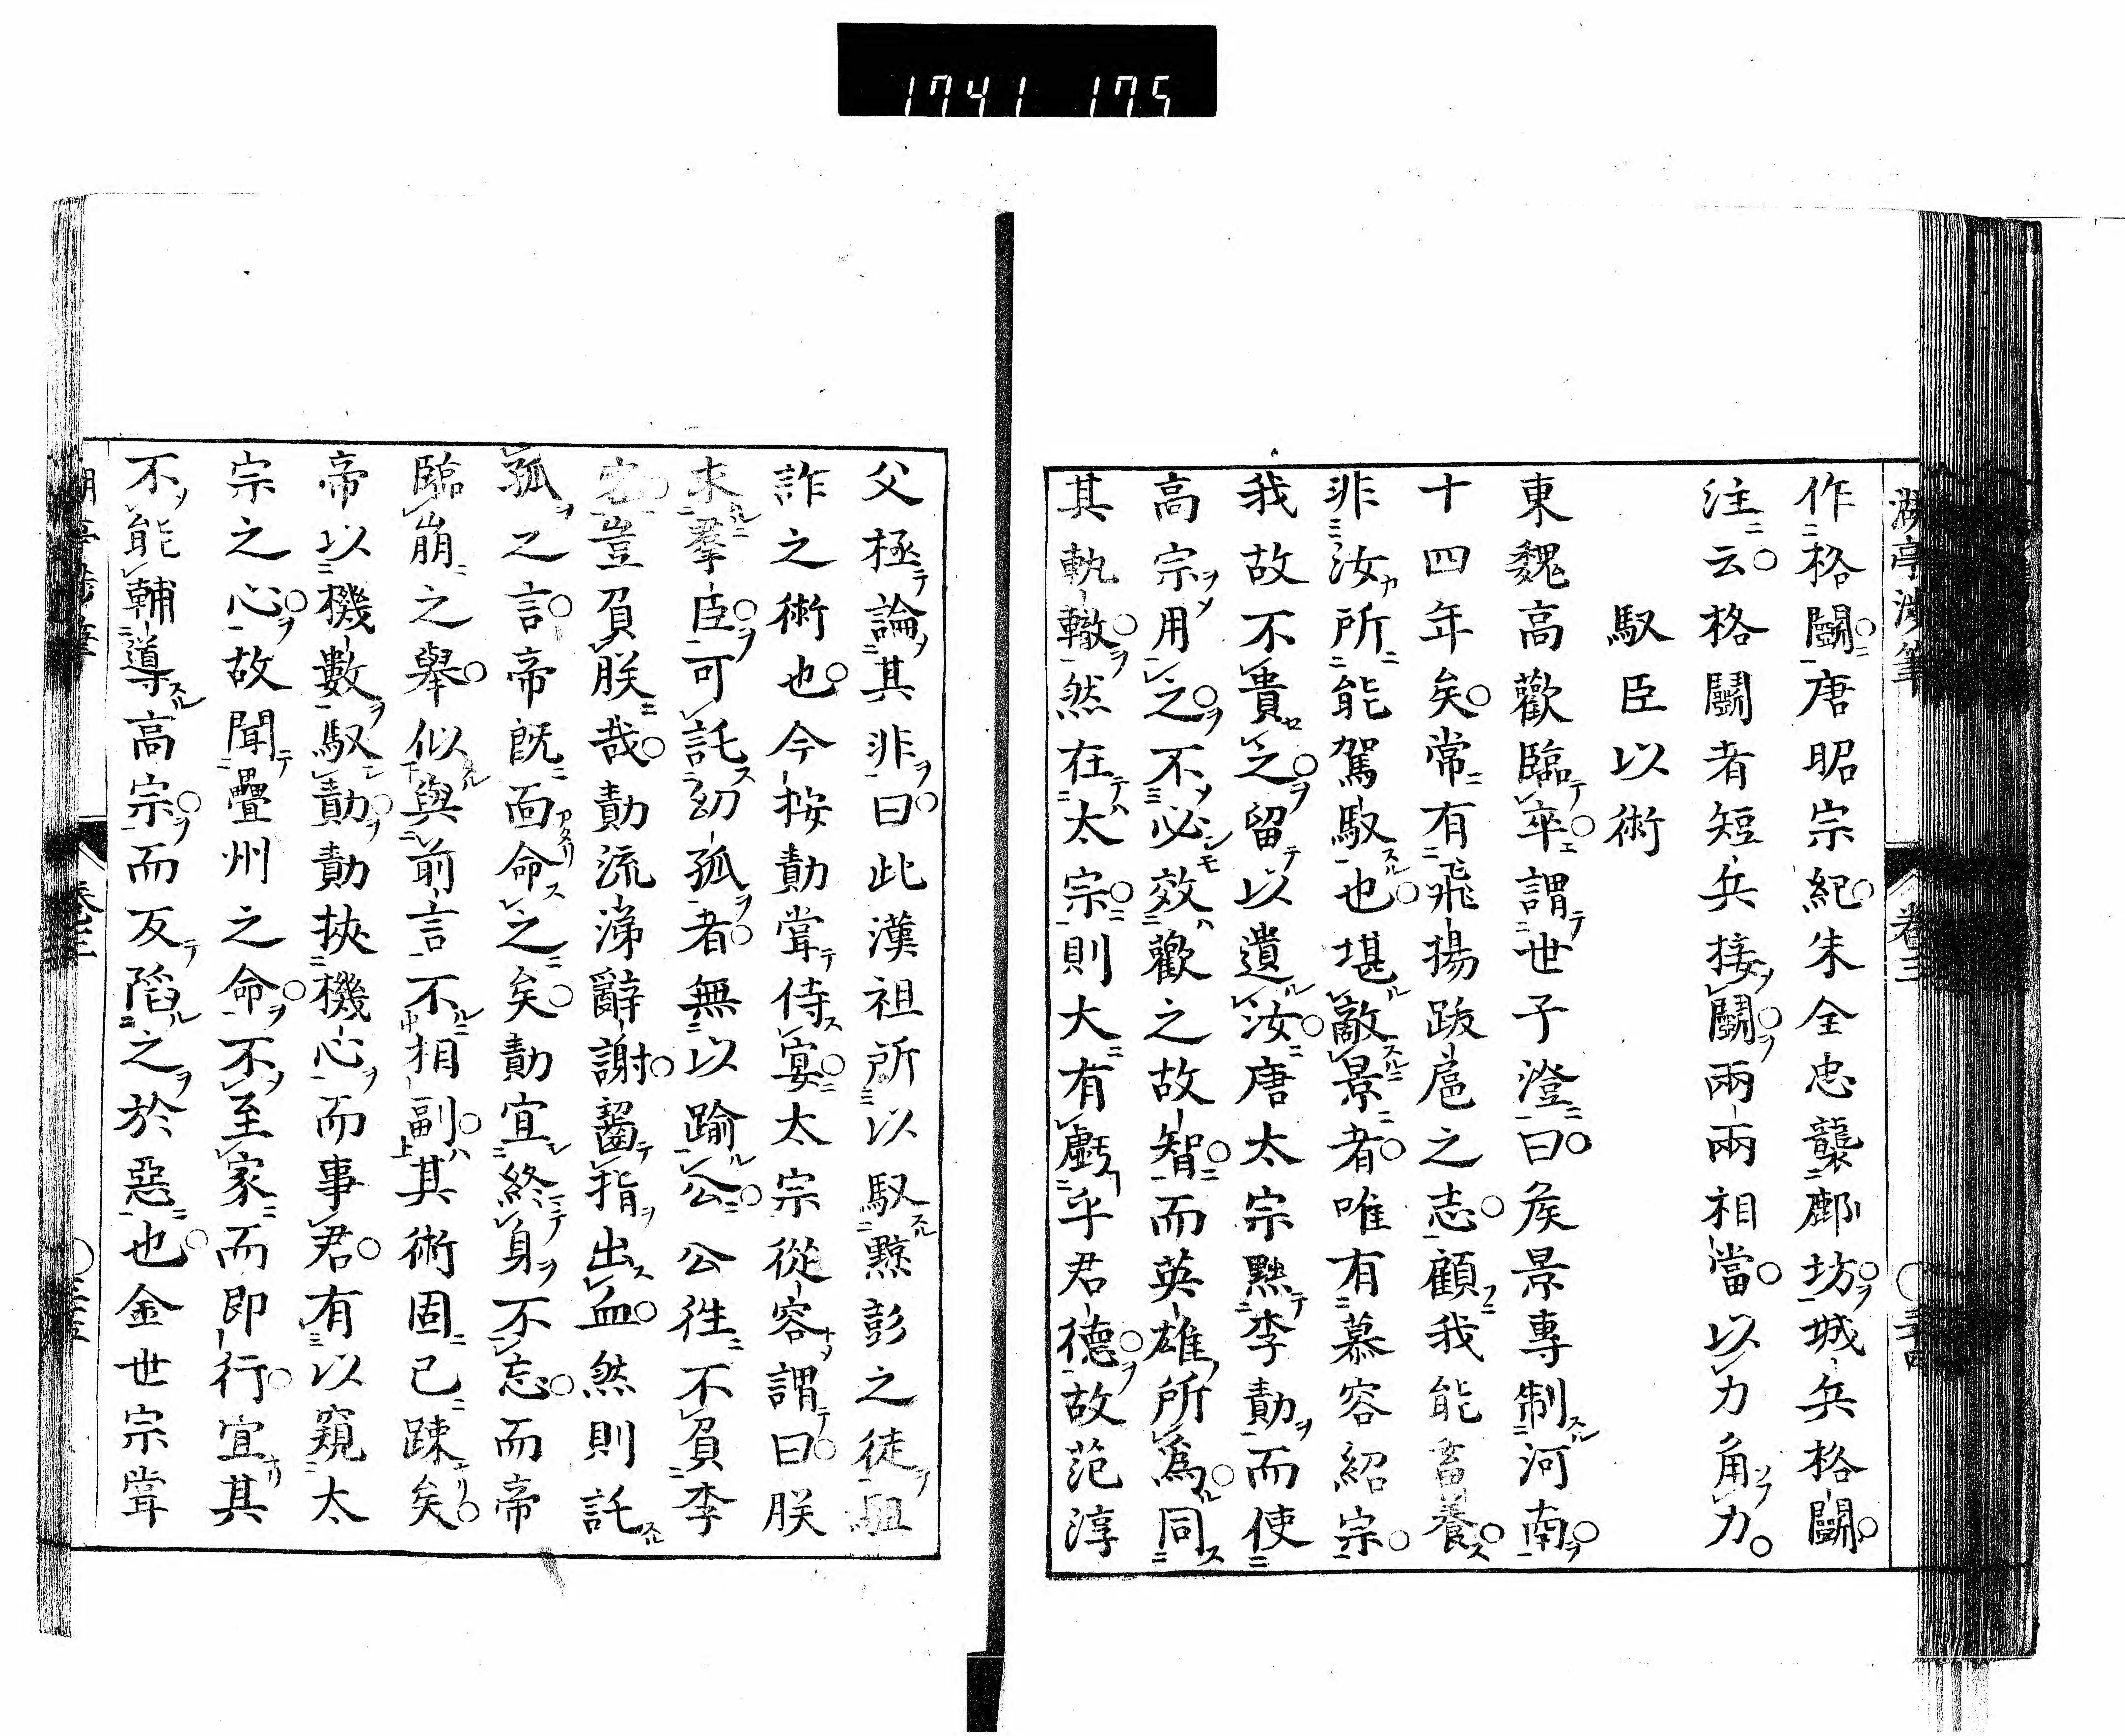 1741 175
作格鬬唐昭宗紀朱全忠襲鄜坊城兵格鬬
注云格鬬者短兵接鬬兩兩相當以力角力
馭臣以術
東魏高歡臨卒謂世子澄曰矦景專制河南
十四年矣常有飛揚跋扈之志顧我能畜養
非汝所能駕馭也堪敵景者唯有慕容紹宗
我故不貴之留以遺汝唐太宗黜李勣而使
高宗用之不必效歡之故智而英雄所爲同
其軌轍然在太宗則大有虧乎君德故范淳
父極論其非曰此漢祖所以馭黥彭之徒駔
詐之術也今按勣甞侍宴太宗從容謂曰朕
求羣臣可託幼孤者無以踰公公徃不負李
宻豈負朕哉勣流涕辭謝齧指出血然則託
孤之言帝既面命之矣勣宜終身不忘而帝
臨崩之舉似與前言不相副其術固已踈矣
帝以機數馭勣勣挾機心而事君有以窺太
宗之心故聞疊州之命不至家而即行宜其
不能輔導高宗而反陷之於惡也金世宗甞
湖亭渉筆
卷三
三十四